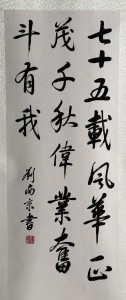 七十五載風華正
茂千秋偉業奮
斗有我
劉南京書